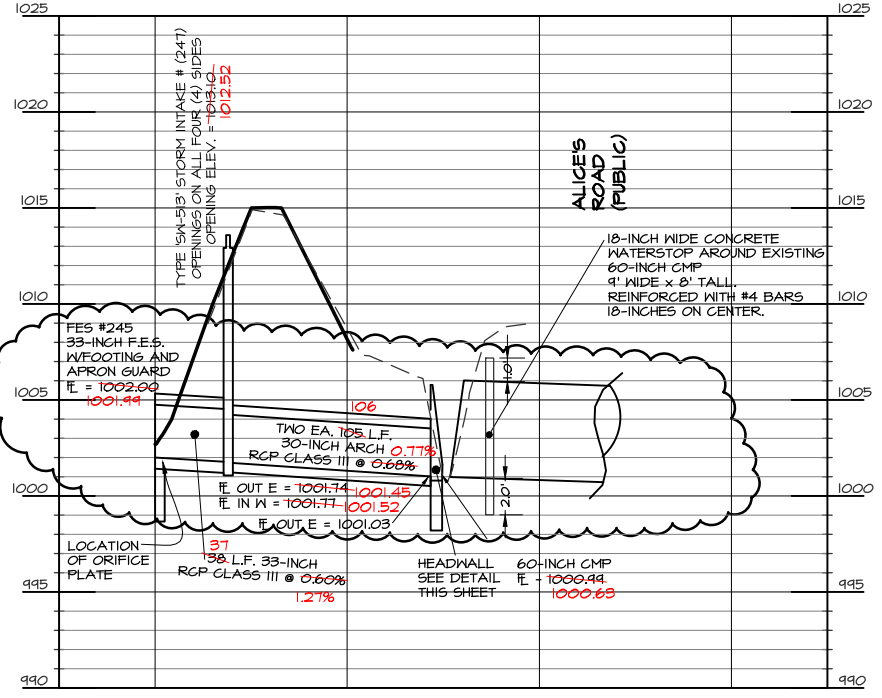 1025
1020
1015
1010
1005
1000
995
990
1025
1020
1015
1010
1005
1000
995
990
TYPE 'SW-513' STORM INTAKE # (247)
OPENINGS ON ALL FOUR (4) SIDES
OPENING ELEV. = 1013.10
1012.52
ALICE'S
ROAD
(PUBLIC)
18-INCH WIDE CONCRETE
WATERSTOP AROUND EXISTING
60-INCH CMP
9' WIDE x 8' TALL.
REINFORCED WITH #4 BARS
18-INCHES ON CENTER.
FES #245
33-INCH F.E.S.
W/FOOTING AND
APRON GUARD
FL = 1002.00
1001.99
1.0'
2.0'
106
TWO EA. 105 L.F.
30-INCH ARCH 0.77%
RCP CLASS III @ 0.68%
FL OUT E = 1001.74 1001.45
FL IN W = 1001.77 1001.52
FL OUT E = 1001.03
LOCATION
OF ORIFICE
PLATE
37
38 L.F. 33-INCH
RCP CLASS III @ 0.60%
1.27%
HEADWALL
SEE DETAIL
THIS SHEET
60-INCH CMP
FL - 1000.99
1000.63